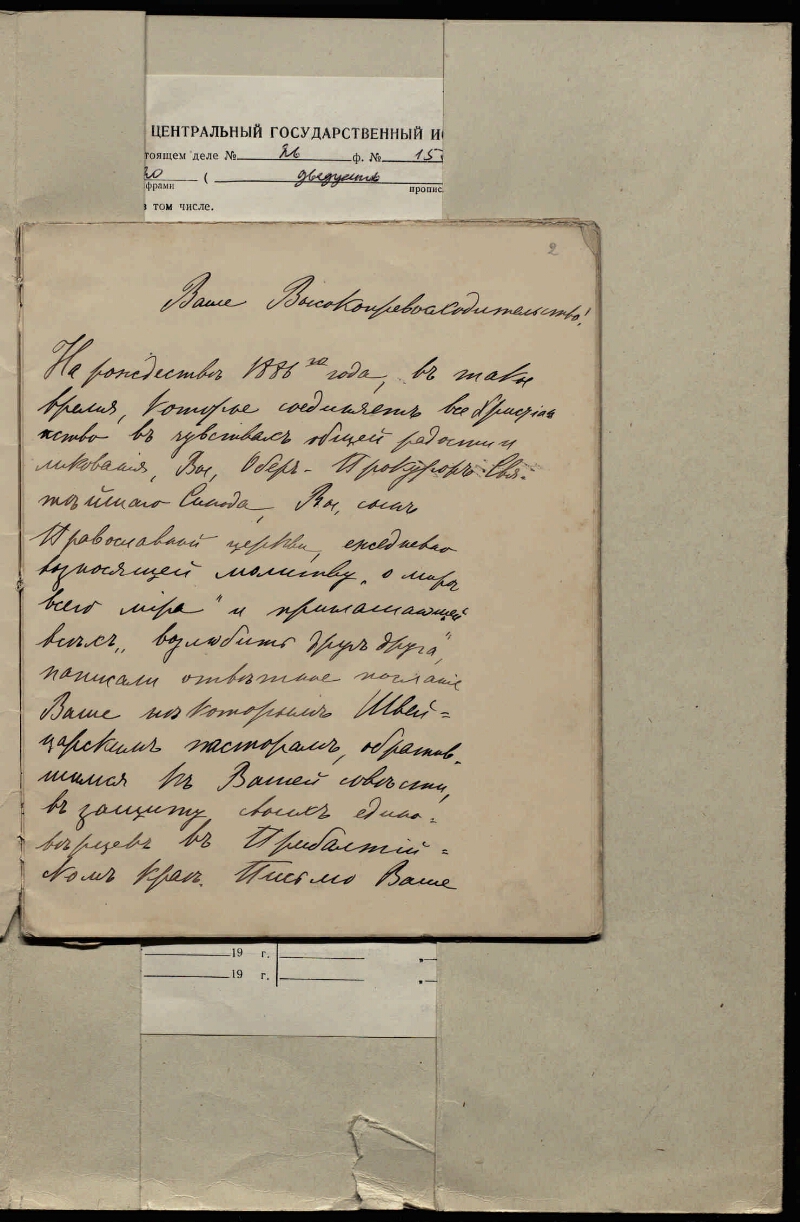 ЦЕНТРАЛЬНЫЙ ГОСУДАРСТВЕННЫЙ ИС
тоящем деле № 26 ф. № 15
20 ( двадцать
ифрами пропис
в том числе.
2
Ваше Высокопревосходительство!
На рождество 1886 го года, въ такое
время, которое соединяетъ все Христiан
нство въ чувствахъ общей радости и
ликованiя, Вы, Оберъ-Прокуроръ Свя-
тѣйшаго Синода, Вы, сынъ
Православной церкви, ежедневно
возносящей молитву „о мирѣ
всего мiра" и приглашающей
всѣхъ „возлюбить другъ друга",
написали отвѣтное посланiе
Ваше нѣкоторымъ Швей=
царскимъ пасторамъ, обратив-
шимся къ Вашей совѣсти,
въ защиту своихъ едино=
вѣрцевъ въ Прибалтiй=
комъ краѣ. Письмо Ваше
19 г.
19 г.